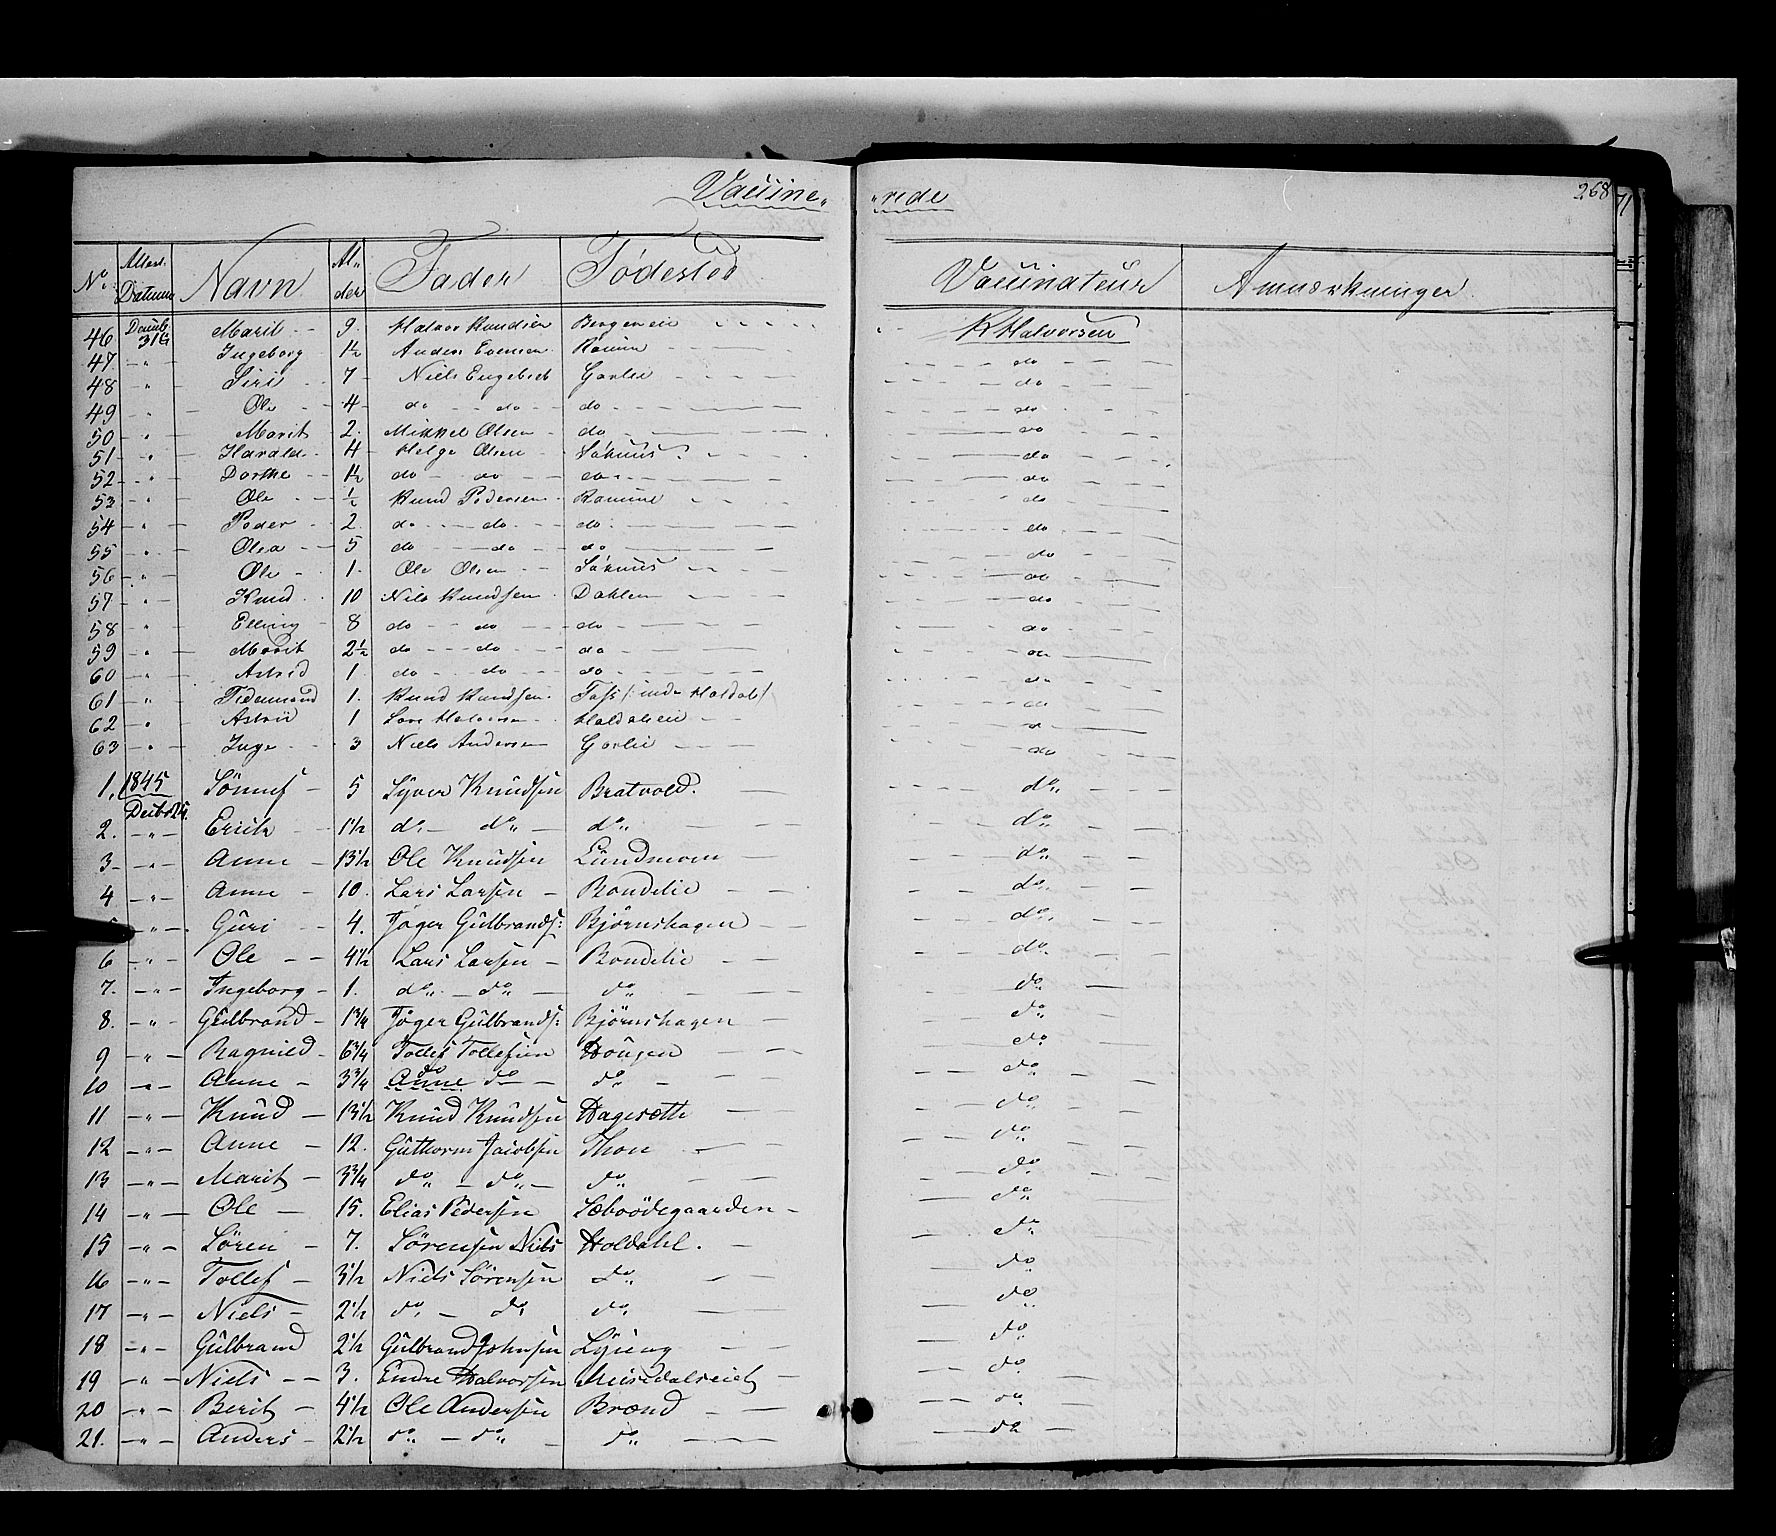 Vaccine„ „rede 268
No. Attest. Datum Navn Al„der Fader Fødested Vaccinateur Anmærkninger
46 Decemb. 31te Marit 9. Halvor Knudsen K Halvorsen
47 — „ — Ingeborg 1½ Anders Evensen do
48 — „ Siri 7 Niels Engebret Garlie do
49 „ — Ole 4 do do do do
50 — „ — Marit 2. Mikkel Olsen do do
51 — „ Harald 4 Helge Olsen do
52 — „ Dorthe 1½ do do do do
53 „ — Ole ½ Knud Pedersen do
54 — „ — Peder 2. do do do do
55 — „ — Olea 5 do do do do
56 — „ — Ole 1. Ole Olsen do
57 — „ — Knud 10 Nils Knudsen Dahlen do
58 „ — Elling 8 do do do do
59 — „ — Marit 2½ do do do do
60 — „ — Astrid 1. do do do do
61 — „ — Tidemand 1. Knud Knudsen do
62 „ Astrii 1 Lars Halvorsen do
63 — „ — Inge 3 Niels Andersen Garlie do
1. 1845 Decbr 24. Sönnef 5 Syver Knudsen Bratvold. do„
2. — „ — Erich 1½ do do„ do„ do„
3 — „ — Anne 13½ Ole Knudsen Lundmoen do„
4 — „ — Anne 10. Lars Larsen Bondelie do„
— „ — Guri 4. Jøger Gulbrands: Bjørnshagen do„
6 — „ — Ole 4½ Lars Larsen Bondelie do„
7. — „ — Ingeborg 1. do„ do„ do„ do„
8. — „ — Gulbrand 1¾ Jøger Gulbrands: Bjørnshagen do„
9 — „ — Ragnild 6¾ Tollef Tollefsen Hougen do„
10 — „ — Anne 3¾ do do do„ do„
11 — „ — Knud 13½ Knud Knudsen Hagesætte do„
12 — „ — Anne 12. Guthorm Jacobsen Thon do„
13 — „ — Marit 3¾ do„ do„ do„ do„
14 — „ — Ole 15. Elias Pedersen Sæboödegaarden do„
15 — „ — Sören 7. Sörensen Niels Holdahl. do„
16 — „ — Tollef 3½ Niels Sörensen do„ do„
17 — „ — Niels 2½ do„ do„ do„ do„
18 — „ — Gulbrand 2½ Gulbrand Johnsen do„
19 — „ — Niels 3. Endre Halvorsen do„
20 — „ — Berit 4½ Ole Andersen Brænd do„
21. — „ — Anders 2½ do„ do„ do„ do